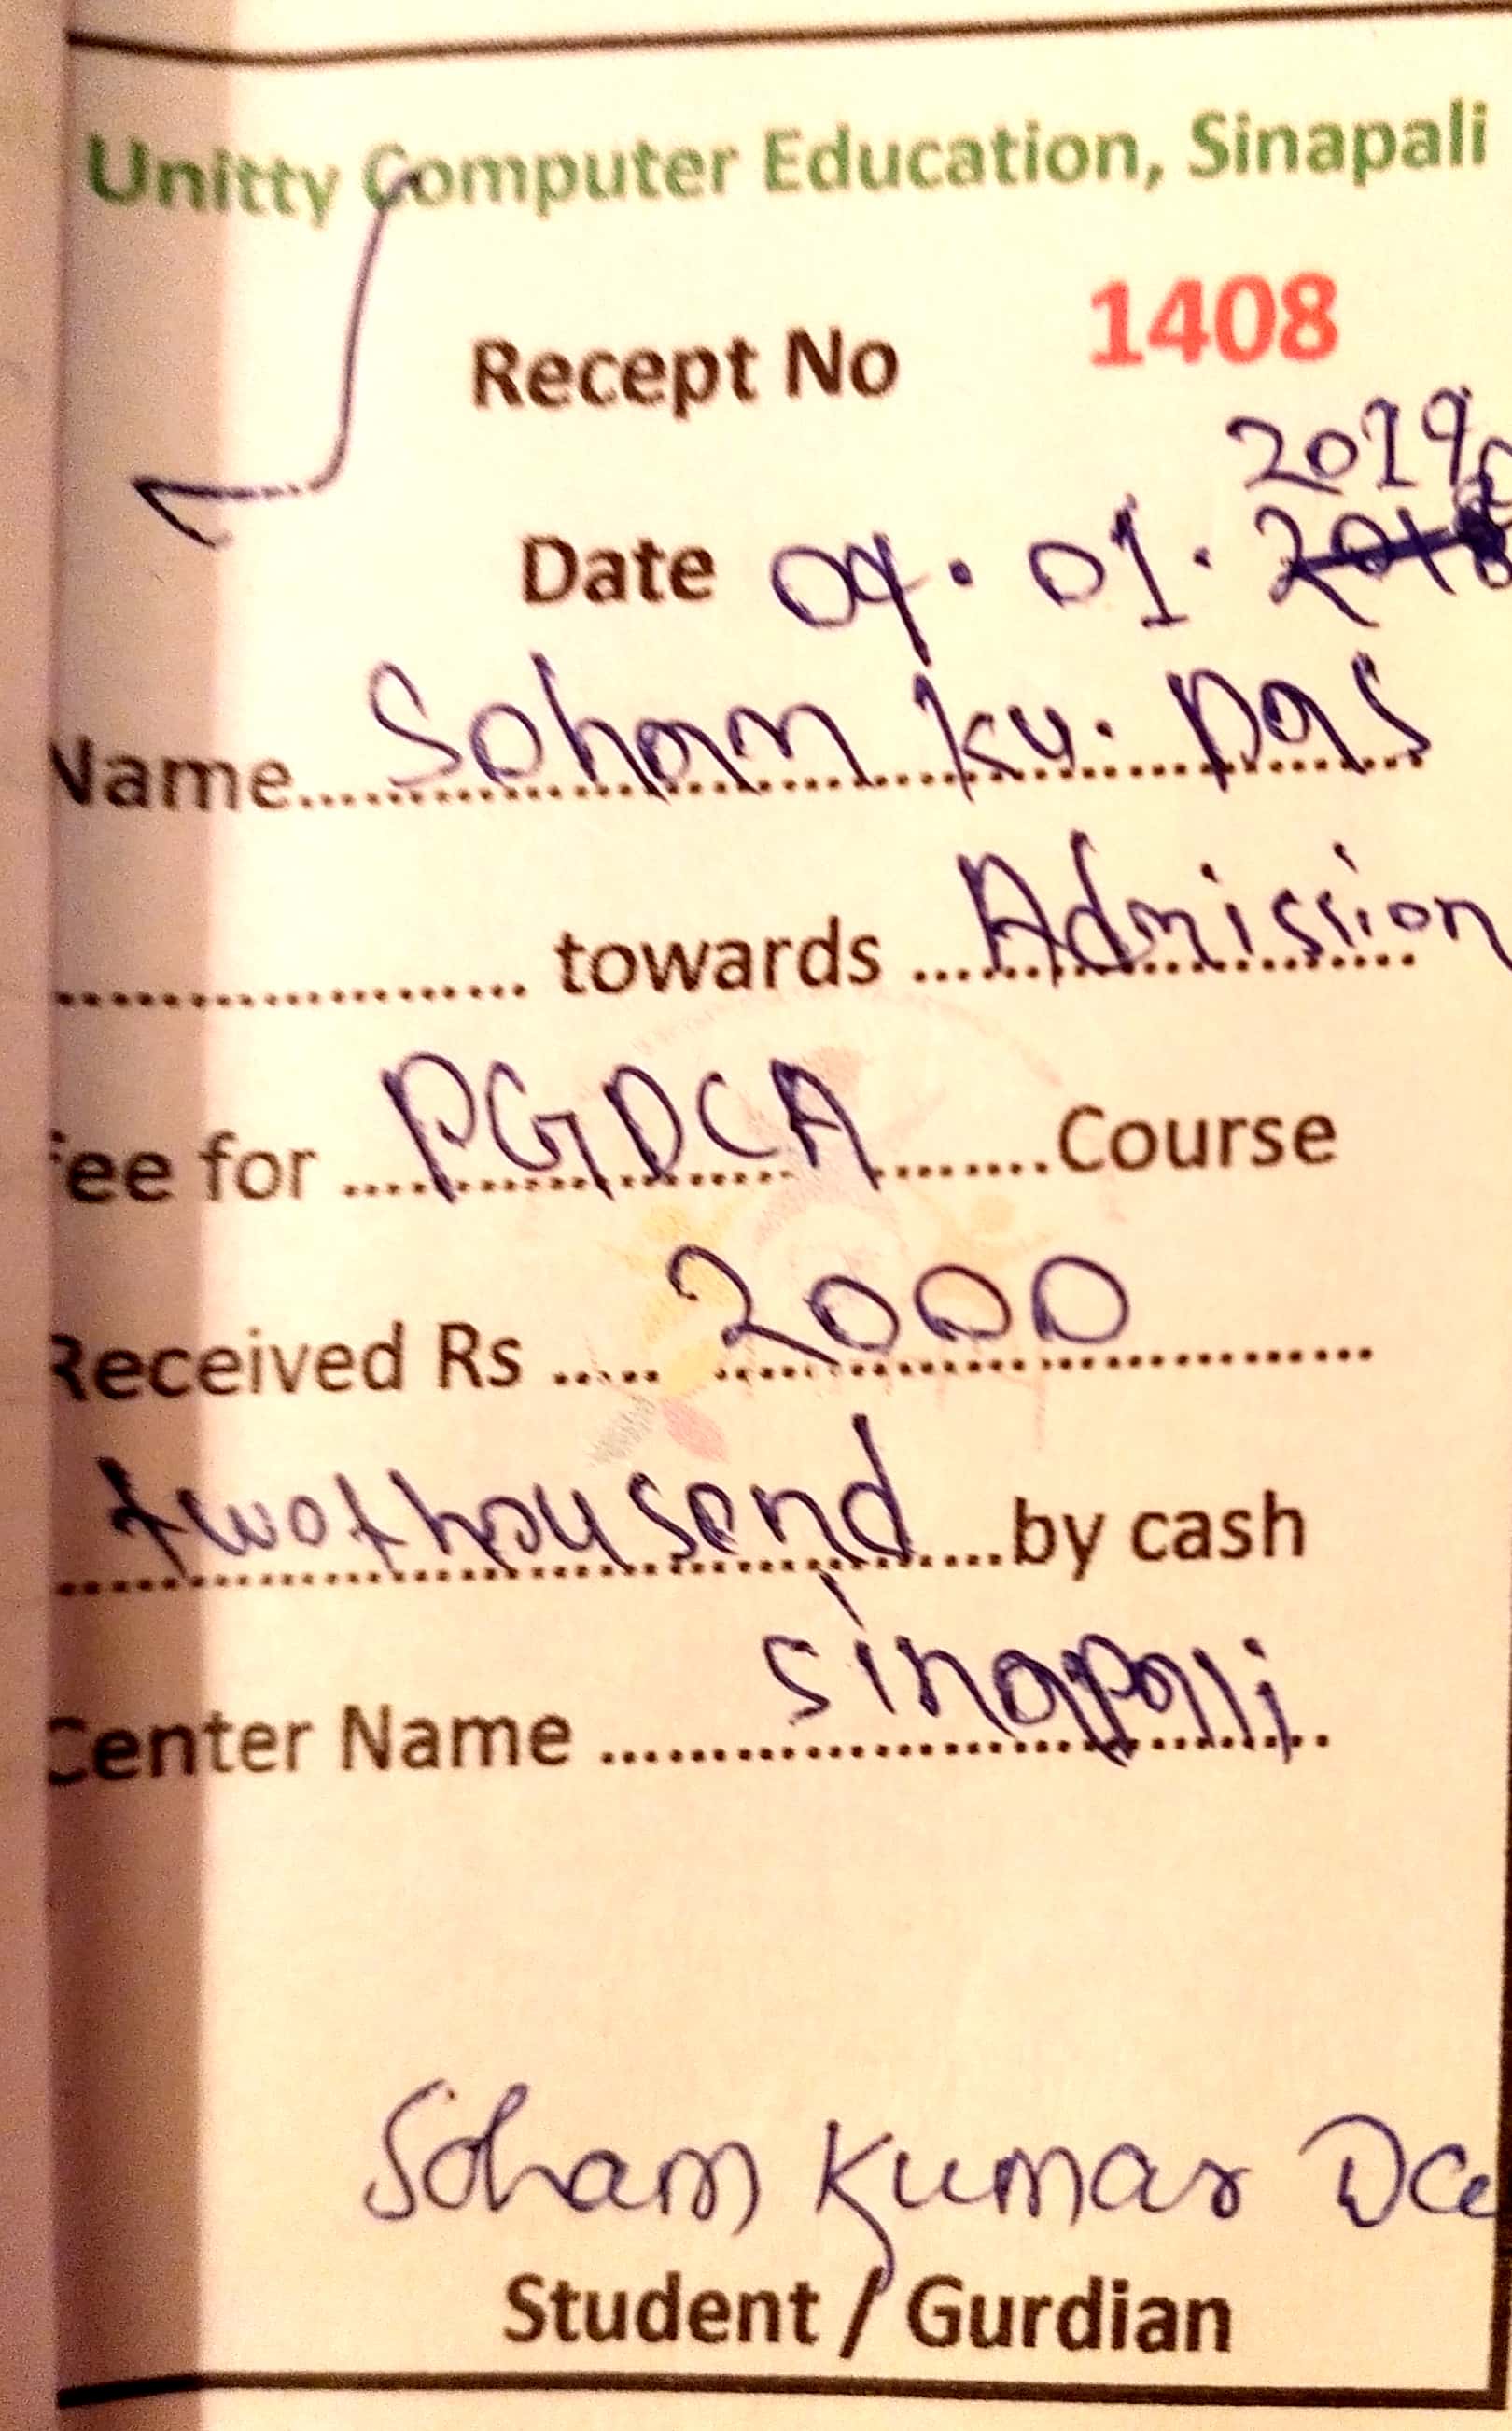 Unitty Computer Education, Sinapali
Recept No 1408
2019
Date 09.01.
Name Soham ku. Das
towards Admission
fee for PGDCA Course
Received Rs 2000
twothousand by cash
Center Name sinapali
Soham Kumar Da
Student / Gurdian